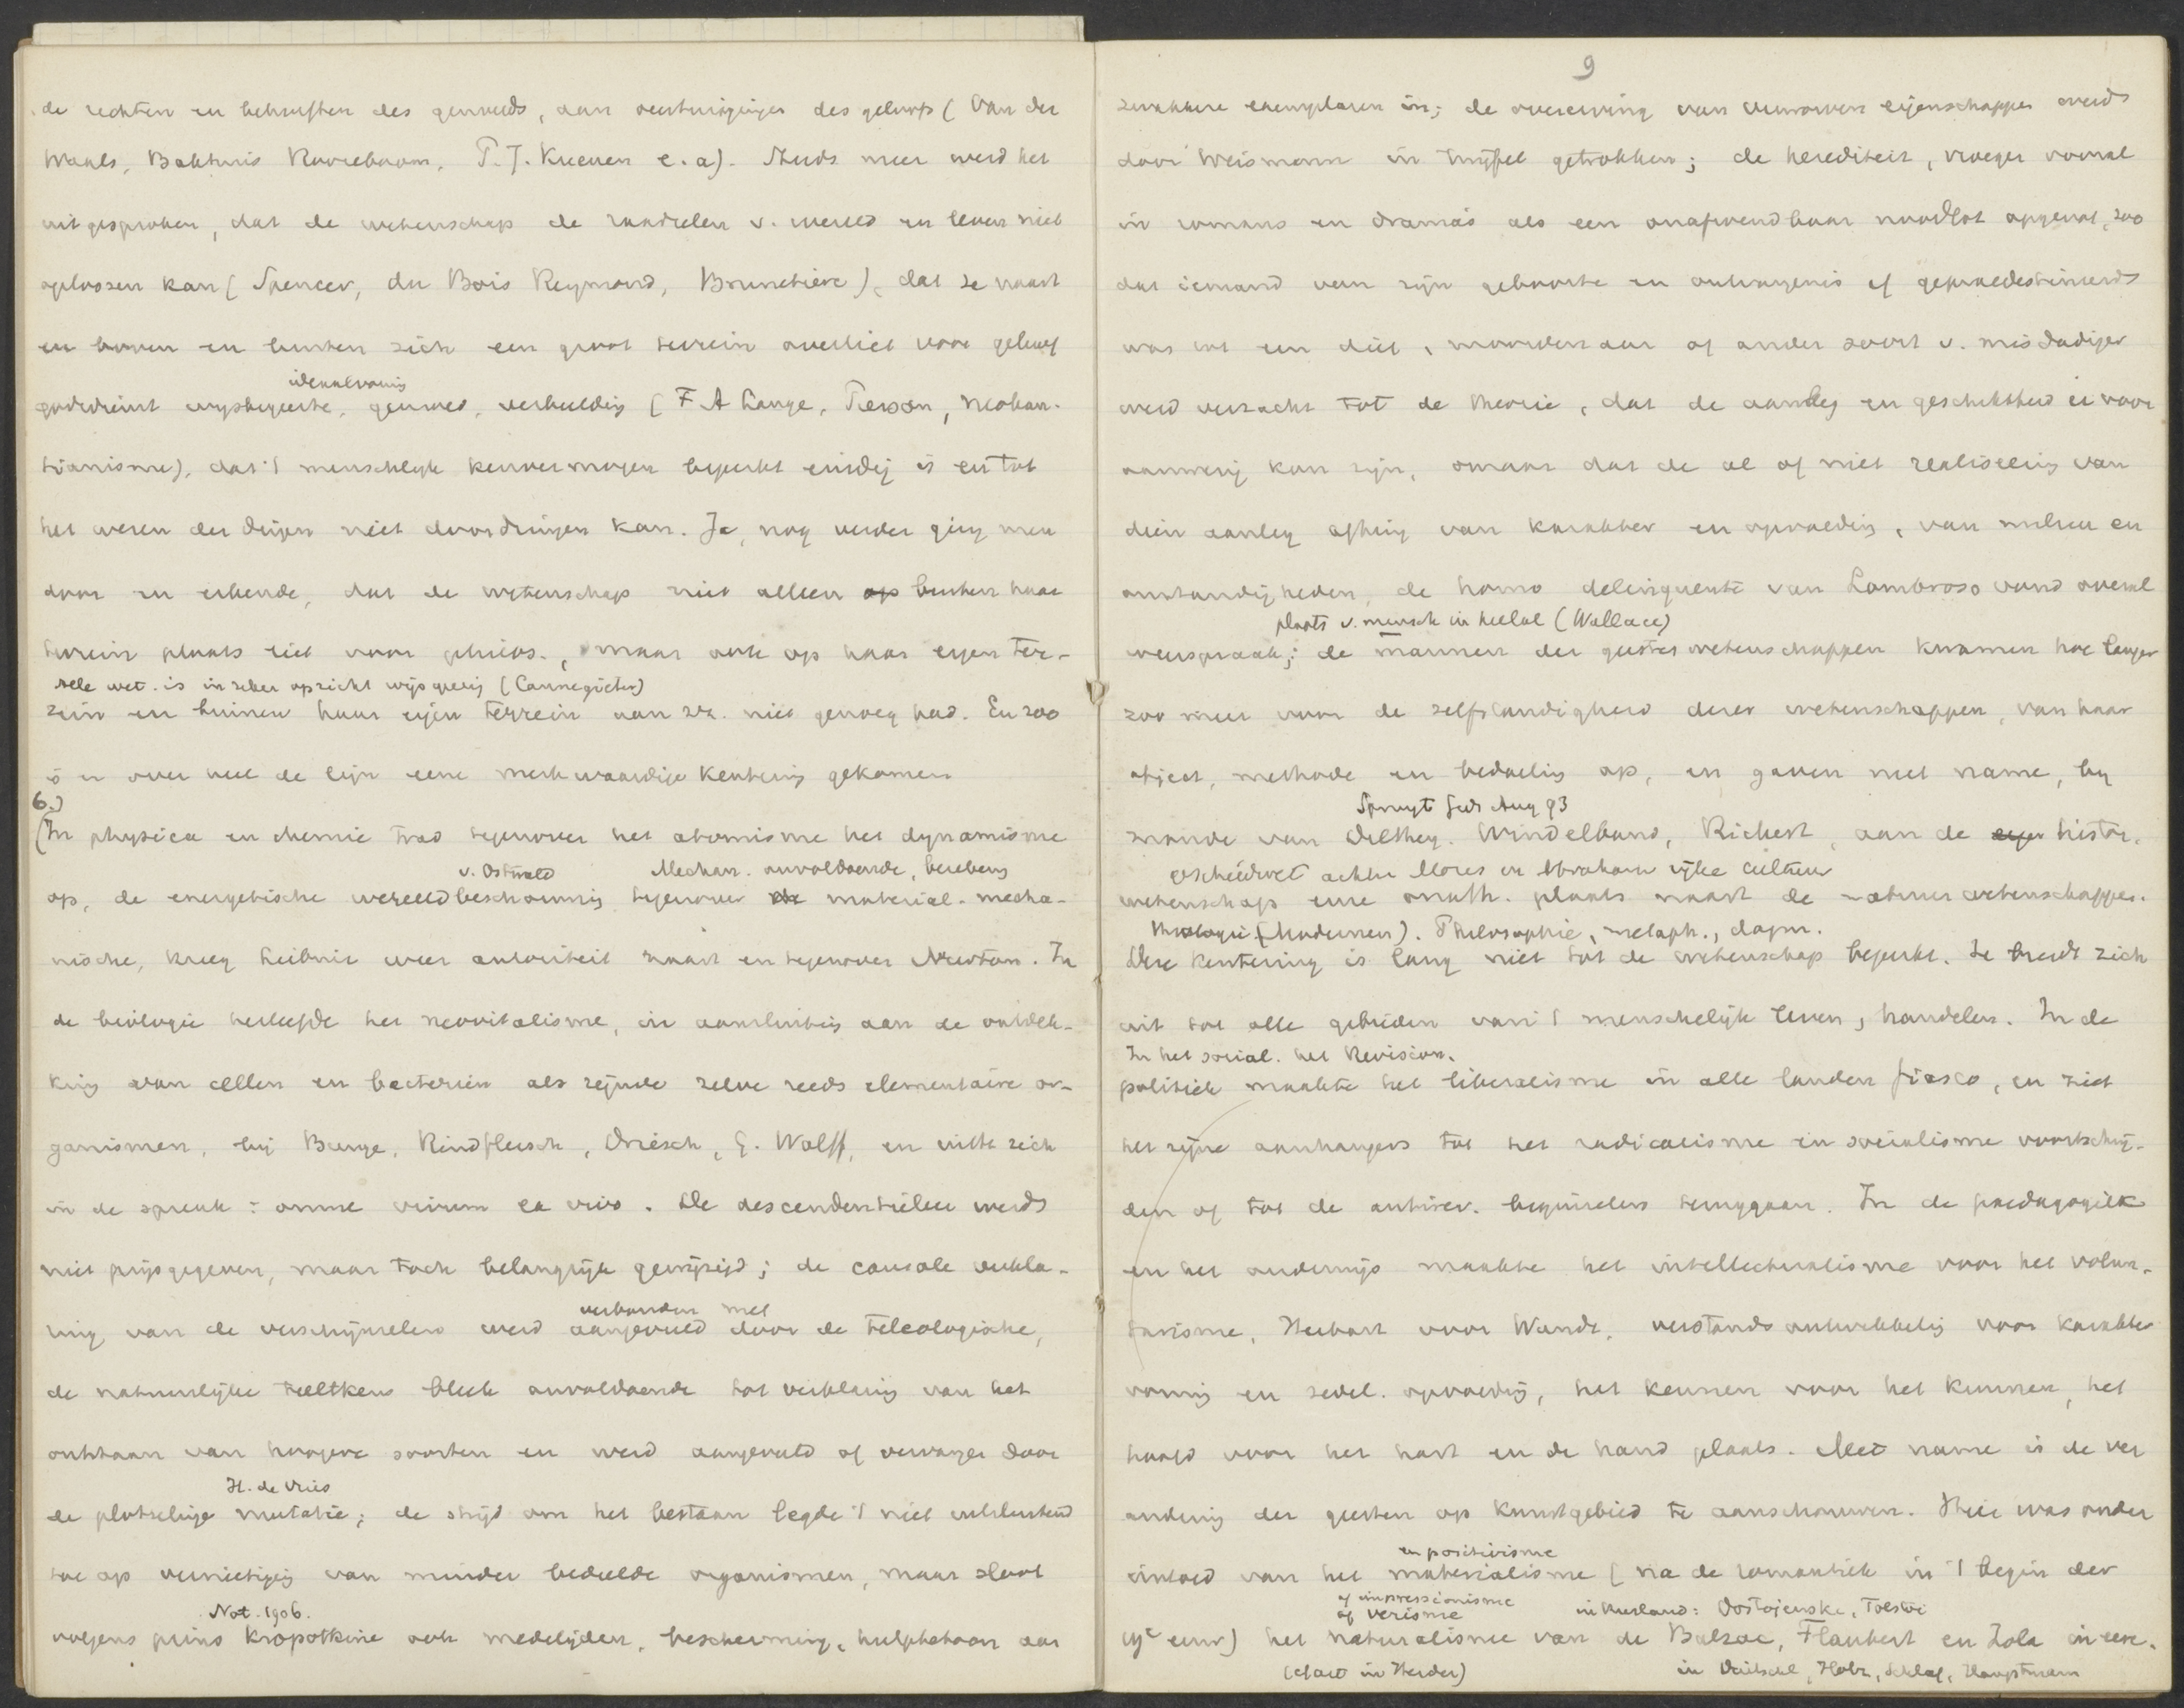 de rechten en behoeften des gemoeds, aan overtuigingen des geloofs (Van der
Waals, Bakhuis Roozeboom, P.J. Kuenen e.a). Steeds meer werd het
uitgesproken, dat de wetenschap de raadselen v. wereld en leven niet
oplossen kan (Spencer, du Bois Reymond, Brunetière), dat ze naast
en boven en buiten zich een groot terrein overliet voor geloof
ideaalvorming
godsdienst wijsbegeerte, gemoed, verbeelding (F A Lange, Pierson, Neokan-
tianisme), dat 't menschelijk kenvermogen beperkt eindig is en tot
het wezen der dingen niet doordringen kan. Ja, nog verder ging men
door en erkende, dat de wetenschap niet alleen op buiten haar
terrein plaats liet voor philos., maar ook op haar eigen ter-
Alle wet. is in zeker opzicht wijsgeerig (Cannegieter)
rein en binnen haar eigen terrein aan zk. niet genoeg had. En zoo
is er over heel de lijn eene merkwaardige kentering gekomen
6.)
(In physica en chemie trad tegenover het atomisme het dynamisme
v. Ostwald Mechan. onvoldoende, 
op, de energetische wereldbeschouwing tegenover de material. mecha-
nische, kreeg Leibniz weer autoriteit naast en tegenover Newton. In
de biologie herleefde het neovitalisme, in aansluiting aan de ontdek-
king van cellen en bacteriën als zijnde zelve reeds elementaire or-
ganismen, bij Bunge, Rindfleisch, Driesch, G. Wolff, en uitte zich
in de spreuk: omne vivum ex vivo. De descendentieleer werd
niet prijsgegeven, maar toch belangrijk gewijzigd; de causale verkla-
verbonden met
ring van de verschijnselen werd aangevuld door de teleologische,
de natuurlijke teeltkeus bleek onvoldoende tot verklaring van het
ontstaan van hoogere soorten en werd aangevuld of vervangen door
H. de Vries
de plotselinge mutatie; de strijd om het bestaan legde 't niet uitsluitend
toe op vernietiging van minder bedeelde organismen, maar sloot
Not. 1906.
volgens prins Kropotkine ook medelijden, bescherming, hulpbetoon aan
9
zwakkere exemplaren in; de overerving van verworven eigenschappen werd
door Weismann in twijfel getrokken; de herediteit, vroeger vooral
in romans en drama's als een onafwendbaar noodlot opgevat, zoo
dat iemand van zijn geboorte en ontvangenis af gepraedestineerd
was tot een dief, moordenaar of ander soort v. misdadiger
werd verzacht tot de theorie, dat de aanleg en geschiktheid er voor
aanwezig kan zijn, maar dat de al of niet realiseering van
dien aanleg afhing van karakter en opvoeding, van milieu en
omstandigheden, de homo delinquente van Lombroso vond overal
plaats v. mensch in heelal (Wallace)
weerspraak; de mannen der geesteswetenschappen kwamen hoe langer
zoo meer voor de zelfstandigheid dezer wetenschappen, van haar
object, methode en bedoeling op, en gaven met name, bij
Spruyt Gids Aug 93
monde van Dilthey, Windelband, Rickert, aan de eigen histor.
geschiedwet achter Mozes en Abraham rijke cultuur
wetenschap eene zelfst. plaats naast de natuurwetenschappen.
Theologie (Modernen). Philosophie, metaph., dogm.
Deze kentering is lang niet tot de wetenschap beperkt. Ze breidt zich
uit tot alle gebieden van 't menschelijk leven, handelen. In de
In het social. het Revision.
politiek maakte het liberalisme in alle landen fiasco, en ziet
het zijne aanhangers tot het radicalisme en socialisme voortschrij-
den of tot de antirev. beginselen teruggaan. In de paedagogiek
en het onderwijs maakte het intellectualisme voor het volun-
tarisme, Herbart voor Wundt, verstandsontwikkeling voor karakter
vorming en zedel. opvoeding, het kennen voor het kunnen, het
hoofd voor het hart en de hand plaats. Met name is de ver
andering der geesten op kunstgebied te aanschouwen. Hier was onder
en positivisme
invloed van het materialisme (na de romantiek in 't begin der
of impressionisme
of verisme in Rusland: Dostojevski, Tolstoi
19e eeuw) het naturalisme van de Balzac, Flaubert en Zola in eere.
(Taart in Herder) in Duitschl, Holz, Schlaf, Hauptmann